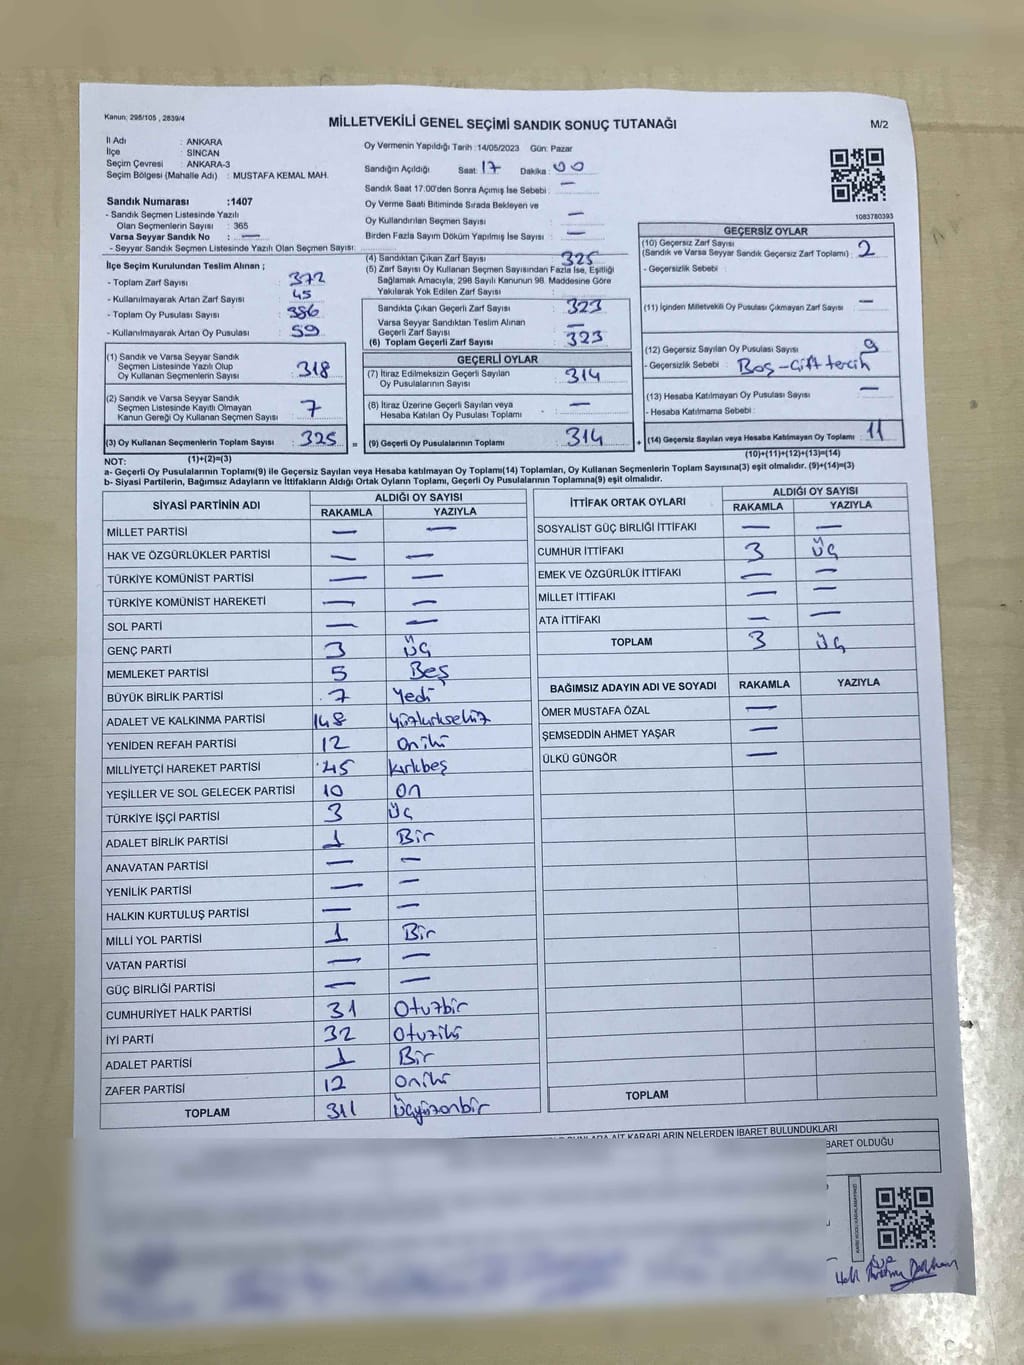 Kanun, 298/105 , 2839/4
MİLLETVEKİLİ GENEL SEÇİMİ SANDIK SONUÇ TUTANAĞI
M/2
İl Adı : ANKARA
İlçe : SİNCAN
Seçim Çevresi : ANKARA-3
Seçim Bölgesi (Mahalle Adı) : MUSTAFA KEMAL MAH.
Oy Vermenin Yapıldığı Tarih :14/05/2023 Gün: Pazar
Sandığın Açıldığı Saat: 17 Dakika: 00
Sandık Saat 17:00'den Sonra Açımış İse Sebebi : —
Oy Verme Saati Bitiminde Sırada Bekleyen ve
Oy Kullandırılan Seçmen Sayısı —
Birden Fazla Sayım Döküm Yapılmış İse Sayısı : —
1083780393
Sandık Numarası :1407
- Sandık Seçmen Listesinde Yazılı
Olan Seçmenlerin Sayısı : 365
Varsa Seyyar Sandık No : —
- Seyyar Sandık Seçmen Listesinde Yazılı Olan Seçmen Sayısı:
İlçe Seçim Kurulundan Teslim Alınan ;
- Toplam Zarf Sayısı : 372
- Kullanılmayarak Artan Zarf Sayısı : 45
- Toplam Oy Pusulası Sayısı : 386
- Kullanılmayarak Artan Oy Pusulası : 59
(1) Sandık ve Varsa Seyyar Sandık
Seçmen Listesinde Yazılı Olup
Oy Kullanan Seçmenlerin Sayısı : 318
(2) Sandık ve Varsa Seyyar Sandık
Seçmen Listesinde Kayıtlı Olmayan
Kanun Gereği Oy Kullanan Seçmen Sayısı : 7
(3) Oy Kullanan Seçmenlerin Toplam Sayısı : 325 =
(1)+(2)=(3)
(4) Sandıktan Çıkan Zarf Sayısı 325
(5) Zarf Sayısı Oy Kullanan Seçmen Sayısından Fazla İse, Eşitliği
Sağlamak Amacıyla, 298 Sayılı Kanunun 98. Maddesine Göre
Yakılarak Yok Edilen Zarf Sayısı :
Sandıkta Çıkan Geçerli Zarf Sayısı : 323
Varsa Seyyar Sandıktan Teslim Alınan
Geçerli Zarf Sayısı : —
(6) Toplam Geçerli Zarf Sayısı : 323
GEÇERLİ OYLAR
(7) İtiraz Edilmeksizin Geçerli Sayılan
Oy Pusulalarının Sayısı : 314
(8) İtiraz Üzerine Geçerli Sayılan veya
Hesaba Katılan Oy Pusulası Toplamı : —
(9) Geçerli Oy Pusulalarının Toplamı : 314 +
GEÇERSİZ OYLAR
(10) Geçersiz Zarf Sayısı
(Sandık ve Varsa Seyyar Sandık Geçersiz Zarf Toplamı) : 2
- Geçersizlik Sebebi :
(11) İçinden Milletvekili Oy Pusulası Çıkmayan Zarf Sayısı : —
(12) Geçersiz Sayılan Oy Pusulası Sayısı : 9
- Geçersizlik Sebebi : Boş-Çift tercih
(13) Hesaba Katılmayan Oy Pusulası Sayısı : —
- Hesaba Katılmama Sebebi :
(14) Geçersiz Sayılan veya Hesaba Katılmayan Oy Toplamı : 11
(10)+(11)+(12)+(13)=(14)
NOT:
a- Geçerli Oy Pusulalarının Toplamı(9) ile Geçersiz Sayılan veya Hesaba katılmayan Oy Toplamı(14) Toplamları, Oy Kullanan Seçmenlerin Toplam Sayısına(3) eşit olmalıdır. (9)+(14)=(3)
b- Siyasi Partilerin, Bağımsız Adayların ve İttifakların Aldığı Ortak Oyların Toplamı, Geçerli Oy Pusulalarının Toplamına(9) eşit olmalıdır.
SİYASİ PARTİNİN ADI ALDIĞI OY SAYISI
RAKAMLA YAZIYLA
MİLLET PARTİSİ — —
HAK VE ÖZGÜRLÜKLER PARTİSİ — —
TÜRKİYE KOMÜNİST PARTİSİ — —
TÜRKİYE KOMÜNİST HAREKETİ — —
SOL PARTİ — —
GENÇ PARTİ 3 Üç
MEMLEKET PARTİSİ 5 Beş
BÜYÜK BİRLİK PARTİSİ 7 Yedi
ADALET VE KALKINMA PARTİSİ 148 Yüzkırksekiz
YENİDEN REFAH PARTİSİ 12 Oniki
MİLLİYETÇİ HAREKET PARTİSİ 45 kırkbeş
YEŞİLLER VE SOL GELECEK PARTİSİ 10 On
TÜRKİYE İŞÇİ PARTİSİ 3 Üç
ADALET BİRLİK PARTİSİ 1 Bir
ANAVATAN PARTİSİ — —
YENİLİK PARTİSİ — —
HALKIN KURTULUŞ PARTİSİ — —
MİLLİ YOL PARTİSİ 1 Bir
VATAN PARTİSİ — —
GÜÇ BİRLİĞİ PARTİSİ — —
CUMHURİYET HALK PARTİSİ 31 Otuzbir
İYİ PARTİ 32 Otuziki
ADALET PARTİSİ 1 Bir
ZAFER PARTİSİ 12 Oniki
TOPLAM 311 Üçyüzonbir
İTTİFAK ORTAK OYLARI ALDIĞI OY SAYISI
RAKAMLA YAZIYLA
SOSYALİST GÜÇ BİRLİĞİ İTTİFAKI — —
CUMHUR İTTİFAKI 3 Üç
EMEK VE ÖZGÜRLÜK İTTİFAKI — —
MİLLET İTTİFAKI — —
ATA İTTİFAKI — —
TOPLAM 3 Üç
BAĞIMSIZ ADAYIN ADI VE SOYADI RAKAMLA YAZIYLA
ÖMER MUSTAFA ÖZAL —
ŞEMSEDDİN AHMET YAŞAR —
ÜLKÜ GÜNGÖR —
TOPLAM
KARARLARIN NELERDEN İBARET BULUNDUKLARI
BARET OLDUĞU